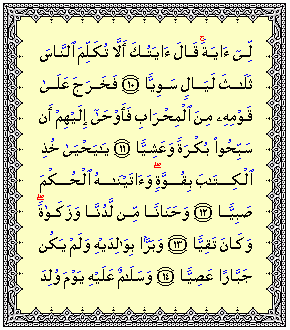 لِّىٓ ءَايَةً ۚ قَالَ ءَايَتُكَ أَلَّا تُكَلِّمَ ٱلنَّاسَ
ثَلَٰثَ لَيَالٍ سَوِيًّا ١٠ فَخَرَجَ عَلَىٰ
قَوْمِهِۦ مِنَ ٱلْمِحْرَابِ فَأَوْحَىٰٓ إِلَيْهِمْ أَن
سَبِّحُوا۟ بُكْرَةً وَعَشِيًّا ١١ يَٰيَحْيَىٰ خُذِ
ٱلْكِتَٰبَ بِقُوَّةٍ ۖ وَءَاتَيْنَٰهُ ٱلْحُكْمَ
صَبِيًّا ١٢ وَحَنَانًا مِّن لَّدُنَّا وَزَكَوٰةً ۖ
وَكَانَ تَقِيًّا ١٣ وَبَرًّۢا بِوَٰلِدَيْهِ وَلَمْ يَكُن
جَبَّارًا عَصِيًّا ١٤ وَسَلَٰمٌ عَلَيْهِ يَوْمَ وُلِدَ